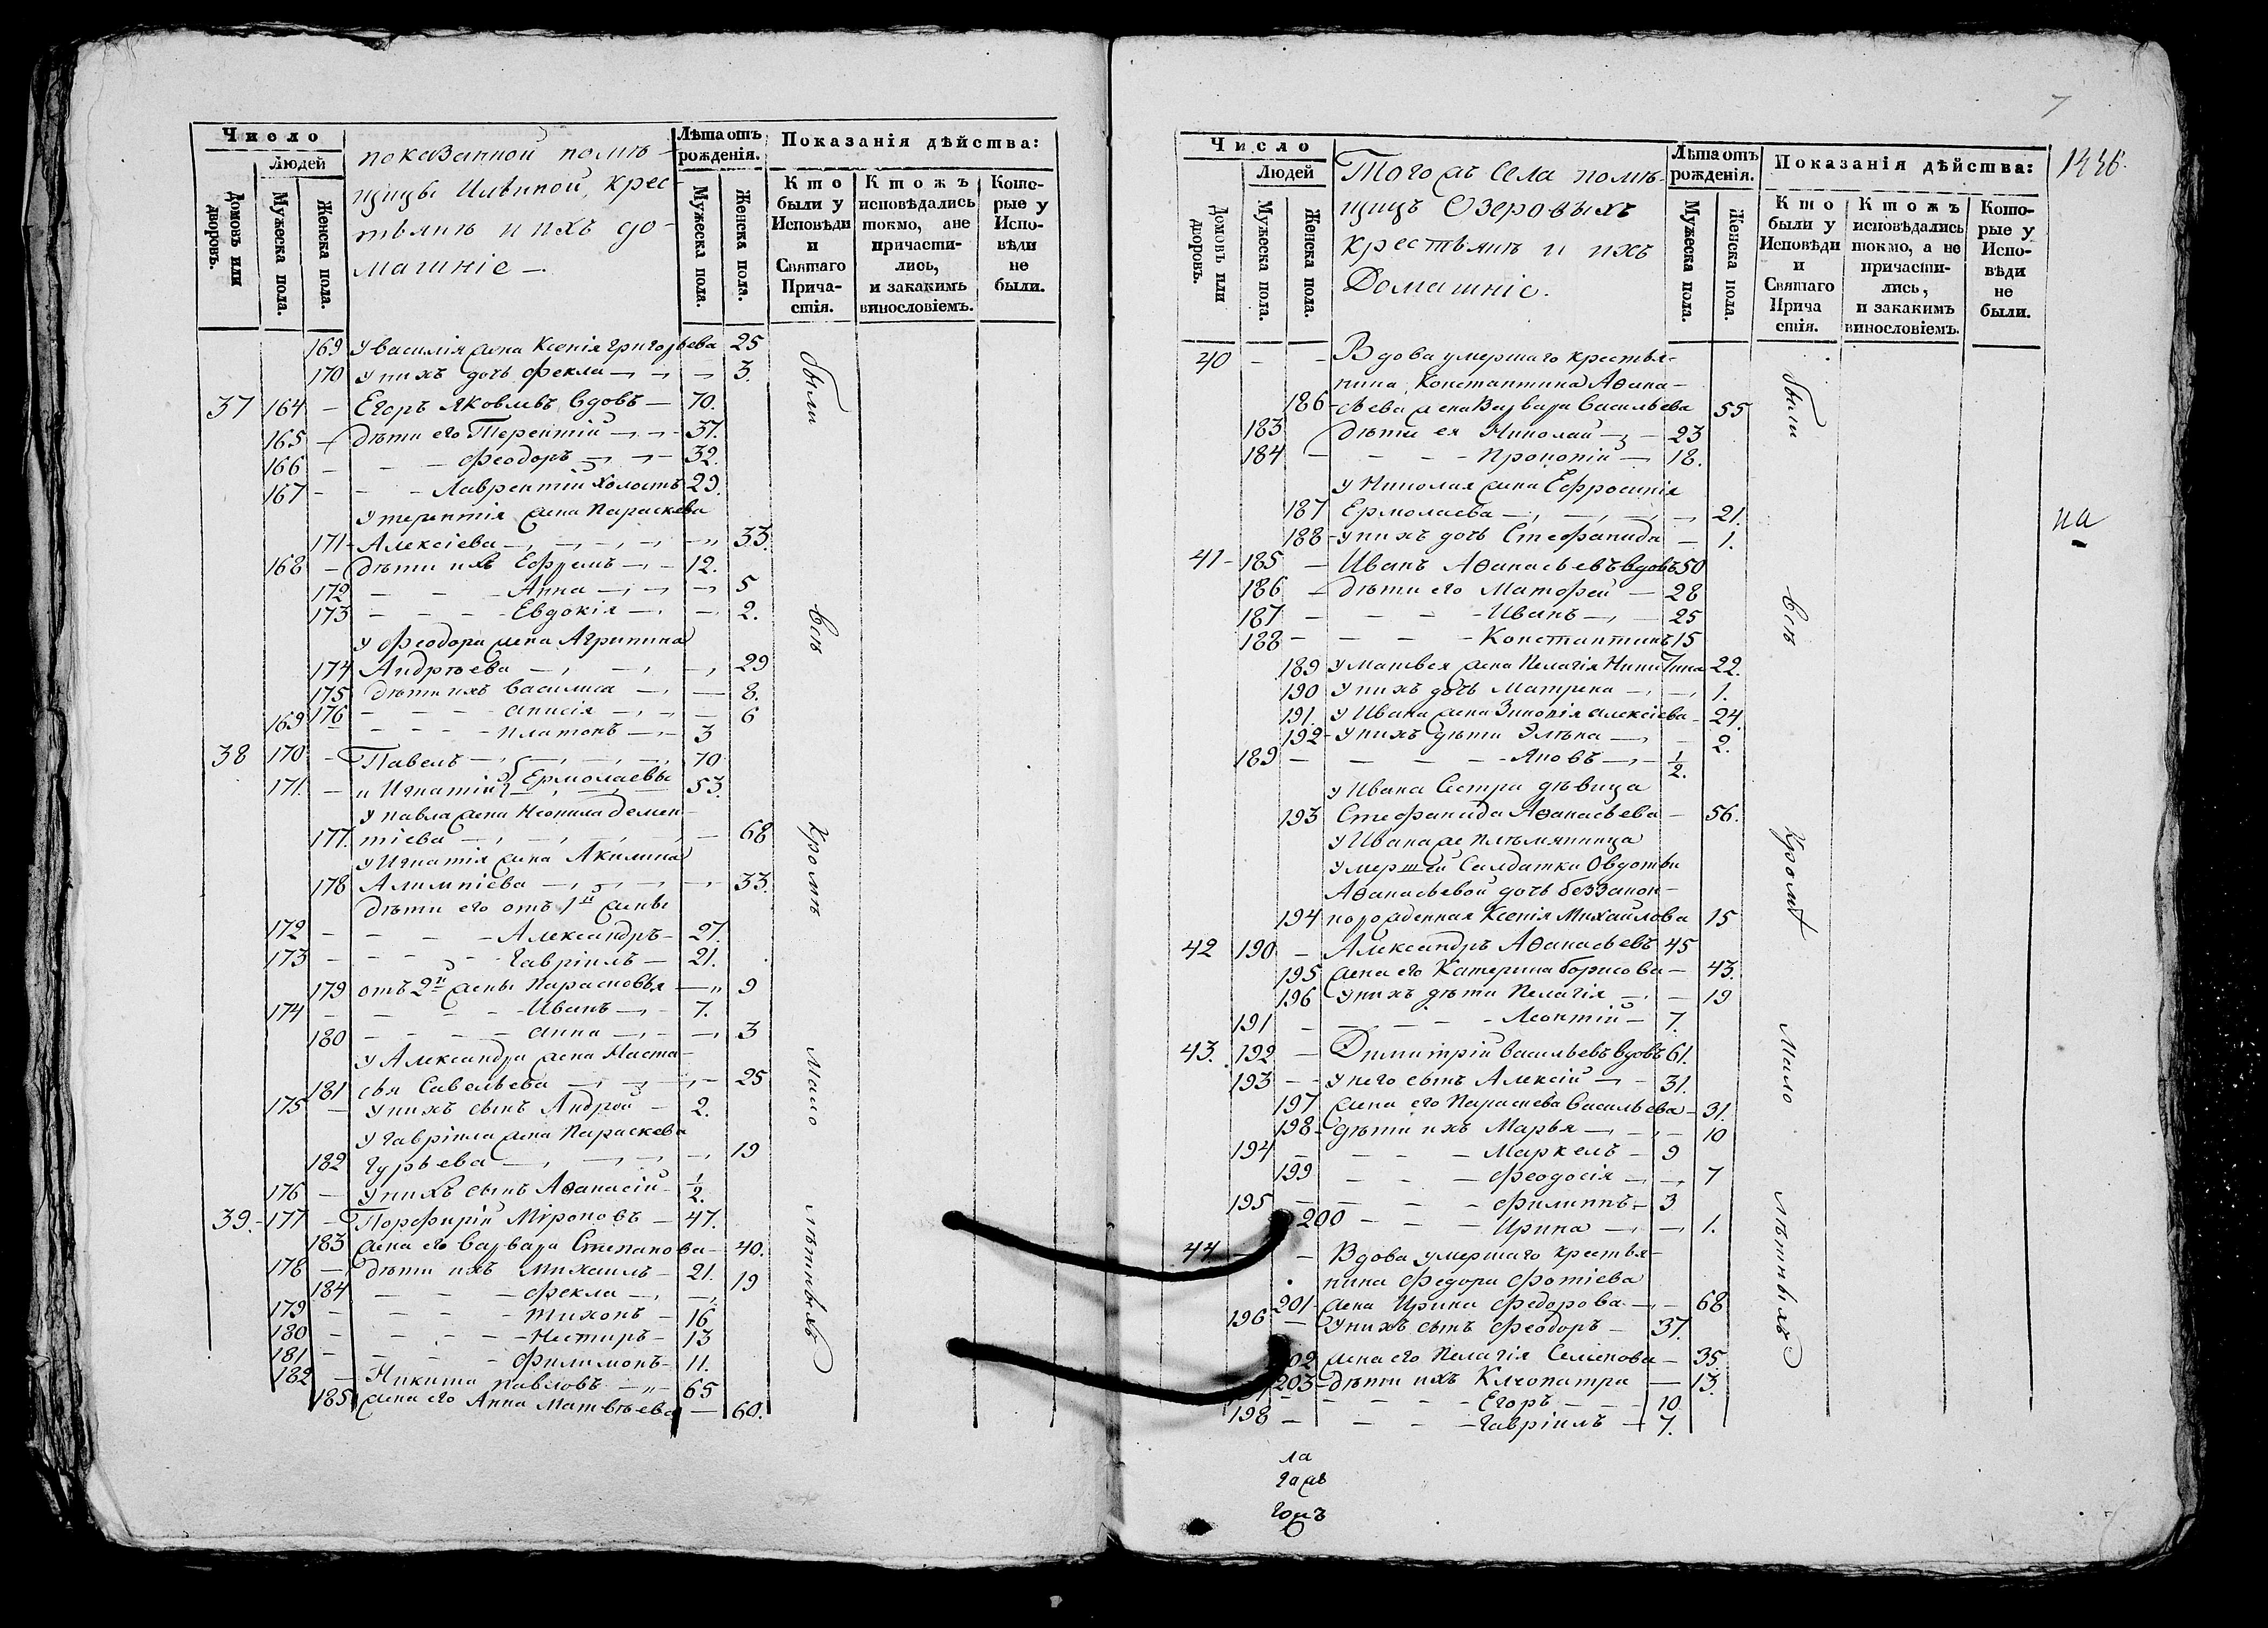 Число
Людей
Домовъ или дворовъ.
Мужеска пола.
Женска пола.
показанной помѣ-
щицы Ильиной, крес-
тьянѣ и ихъ до-
машніе —
Лѣта отъ рожденія.
Мужеска пола.
Женска пола.
Показанія дѣйства:
Кто были у Исповѣди и Святаго Прича-стія.
Ктожъ исповѣдались токмо, ане причасти-лись, и закакимъ винословіемъ.
Кото-рые у Испо-вѣди не были.
169 у василія жена Ксенія григорьева 25
170 у нихъ дочь Фекла — 3.
37 164 — Егоръ Яковлевъ вдовъ — 70.
165 — дѣти его Терентій — 37.
166 — Феодоръ — 32.
167 — Лаврентій холостъ 29.
у терентія жена Параскева
171 — Алексіева — 33.
168 — дѣти ихъ Ефремъ — 12.
172 — Анна — 5
173 — Евдокія — 2.
у Феодора жена Агрипина
174 Андрѣева — 29
175 дѣти ихъ Василиса — 8.
176 — Анисія — 6
169 — Платонъ — 3
38 170 — Павелъ — 70
Ермолаевы
171. — и Игнатій — 53.
у павла жена Неонила демен-
177. тіева — 68
у Игнатія жена Акилина
178 Алимпіева — 33.
дѣти его отъ 1й жены
172 — Александръ — 27.
173 — Гавріилъ — 21.
179 отъ 2й жены Парасковья — 9
174 — Иванъ — 7.
180 — Анна — 3
у Александра жена Наста-
181 сья Савельева — 25
175 — у нихъ сынъ Андрей — 2.
у Гавріила жена Параскева
182 Гурьева — 19
176 — у нихъ сынъ Аѳанасій — 1/2.
39. — 177 — Порфирій Міроновъ — 47.
183 жена его Варвара Степанова — 40.
178 — дѣти ихъ Михаилъ — 21.
184 — Фекла — 19
179 — Тихонъ — 16
180 — Несторъ — 13
181 — Филимонъ — 11.
182 — Никита Павловъ — 65
185 жена его Анна Матвѣева — 60.
были
всѣ
Кромѣ
Мало
лѣтныхъ
7
1436.
Число
Людей
Домовъ или дворовъ.
Мужеска пола.
Женска пола.
Того жъ Села помѣ-
щицъ Озеровыхъ
крестьянѣ и ихъ
Домашніе.
Лѣта отъ рожденія.
Мужеска пола.
Женска пола.
Показанія дѣйства:
Кто были у Исповѣди и Святаго Прича стія.
Ктожъ исповѣдались токмо, а не причасти-лись, и закакимъ винословіемъ.
Кото-рые у Испо-вѣди не были.
40 — — Вдова умершаго крестья-
нина Константина Аѳана-
186 — сьева жена Варвара Васильева 55
183 дѣти ея Николай — 23
184 — Прокопій — 18.
у Николая жена Ефросинія
187 Ермолаева — 21.
188 — у нихъ дочь Стефанида — 1.
41 — 185 — Иванъ Аѳанасьевъ вдовъ 50
186 — дѣти его Матфей — 28
187 — Иванъ — 25
188 — Константинъ 15
189 у матвея жена Пелагія Никитина 22.
190 у нихъ дочь Матрена — 1.
191. у Ивана жена Зиновія алексіева — 24
192 — у нихъ дѣти Элѣна — 2.
189 — Яковъ — 1/2.
у Ивана Сестра дѣвица
193 Стефанида Аѳанасьева — 56.
У Ивана же племянница
умершей Салдатки Овдотьи
Аѳанасьевой дочь беззакон-
194 норожденная Ксенія Михаилова 15
42 190 — Александръ Аѳанасьевъ 45
195 жена его Катерина борисова — 43.
196 у нихъ дѣти Пелагія — 19
191 — Леонтій — 7.
43. 192 — Димитрій васильевъ вдовъ 61.
193 — у него сынъ Алексій — 31.
197 жена его Параскева Васильева — 31.
198 — дѣти ихъ Марья — 10
194 — Маркелъ — 9
199 — Феодосія — 7
195 — Филиппъ — 3
200 — Ирина — 1.
44. — — Вдова умершаго крестья-
нина Федора Фотіева
201 — жена Ирина Федорова — 68
196 — у нихъ сынъ Феодоръ — 37.
202 жена его Пелагія Семенова — 35.
203 — дѣти ихъ Клеопатра — 13.
— Егоръ — 10
198 — Гавріилъ — 7.
были
всѣ
Кромѣ
Мало
лѣтныхъ
на